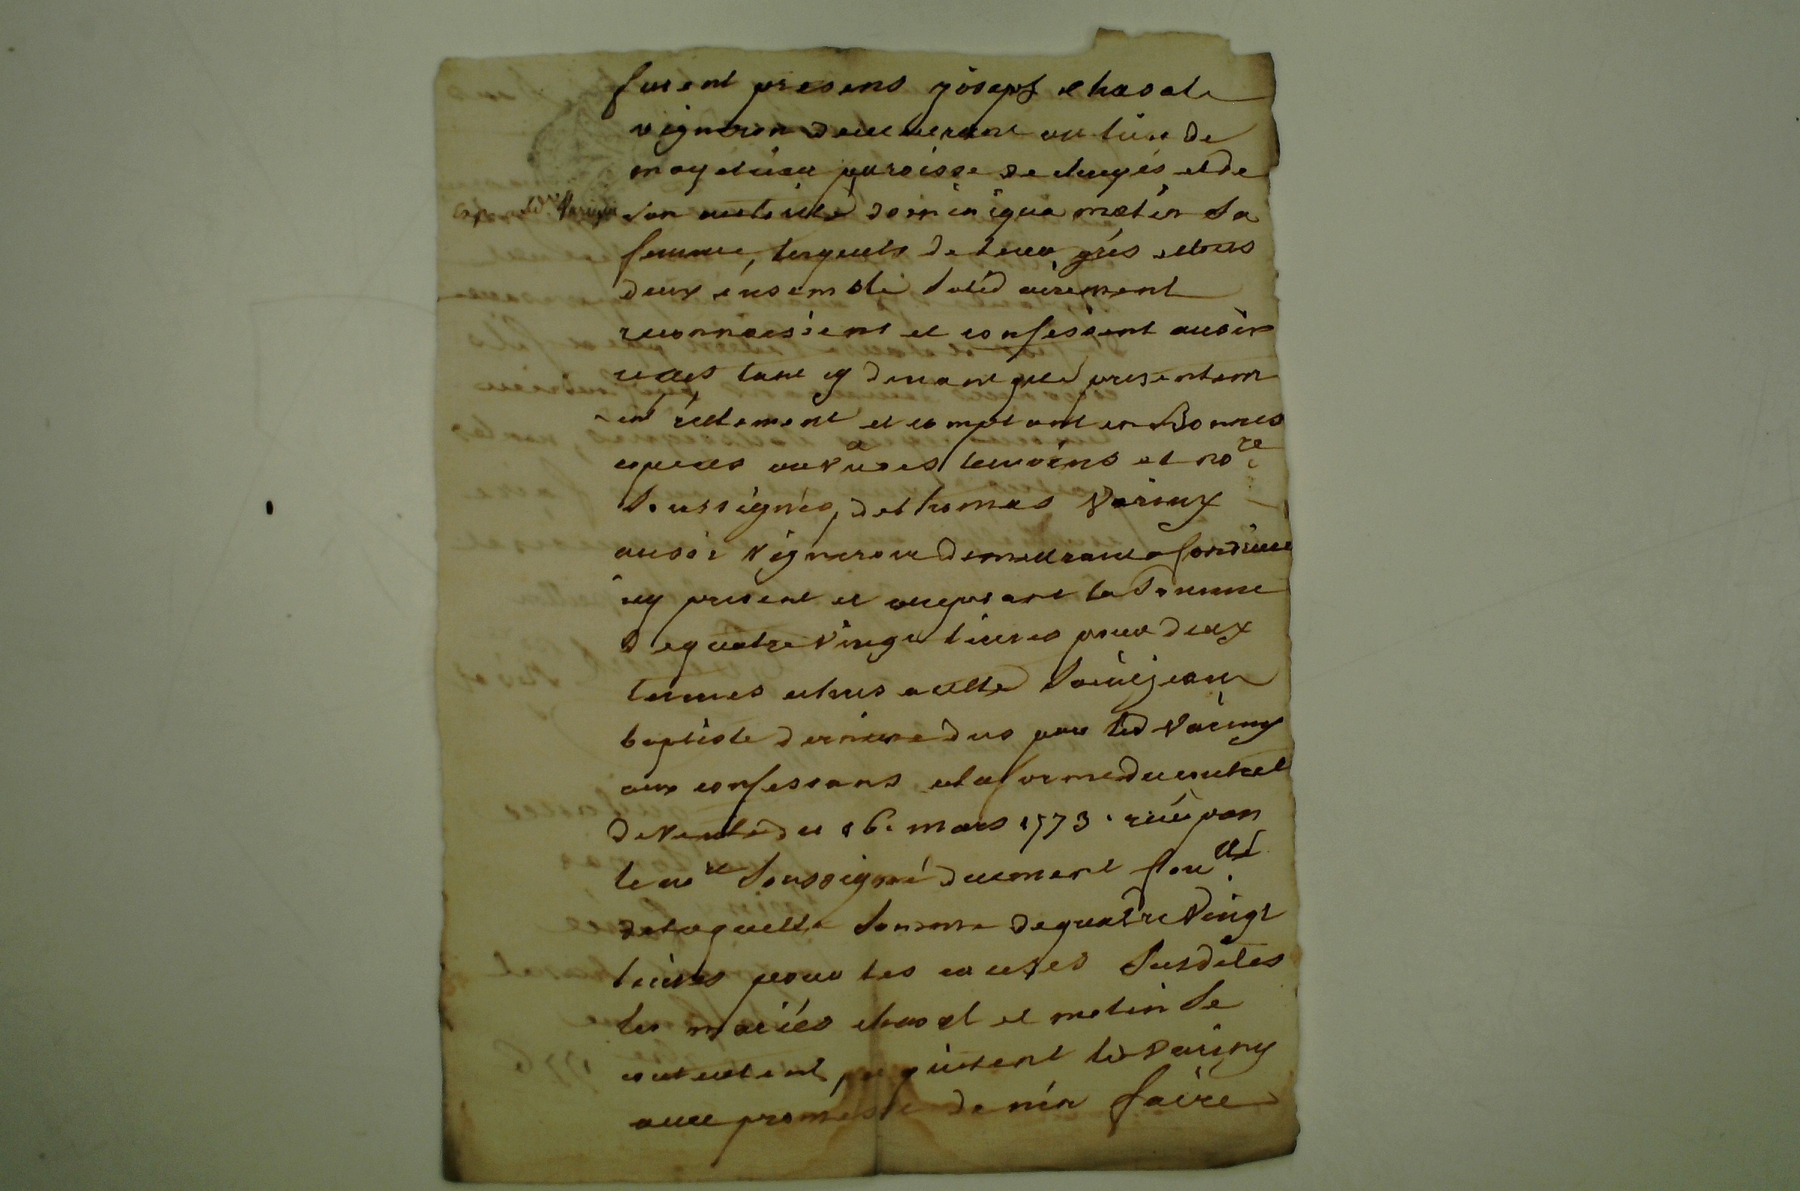 furent presens joseph chasal
vigneron demeurant au lieu de
paroisse de et de
son autorité dominiqua metin sa
femme, lesquels de leur grés et tous
deux ensemble solidairement
reconnoissent et confessent avoir
recus tant cy devant que presentem
ent réellement et comptant en bonnes
especes au vu des temoins et no.re
soussignés, de thomas Variny
aussi vigneron demeurant a
icy present et acceptant la somme
de quatre vingt livres pour deux
termes echus a celle saint jean
baptiste derniere dus par led Variny
aux confessans et a la forme du contrat
de vente du 16. mars 1773. recu par
le no.re soussigné duement
de laquelle somme de quatre vingt
livres pour les causes susdites
les mariés chasal et metin se
contentent, quittent led Variny
avec promesse de n'en faire